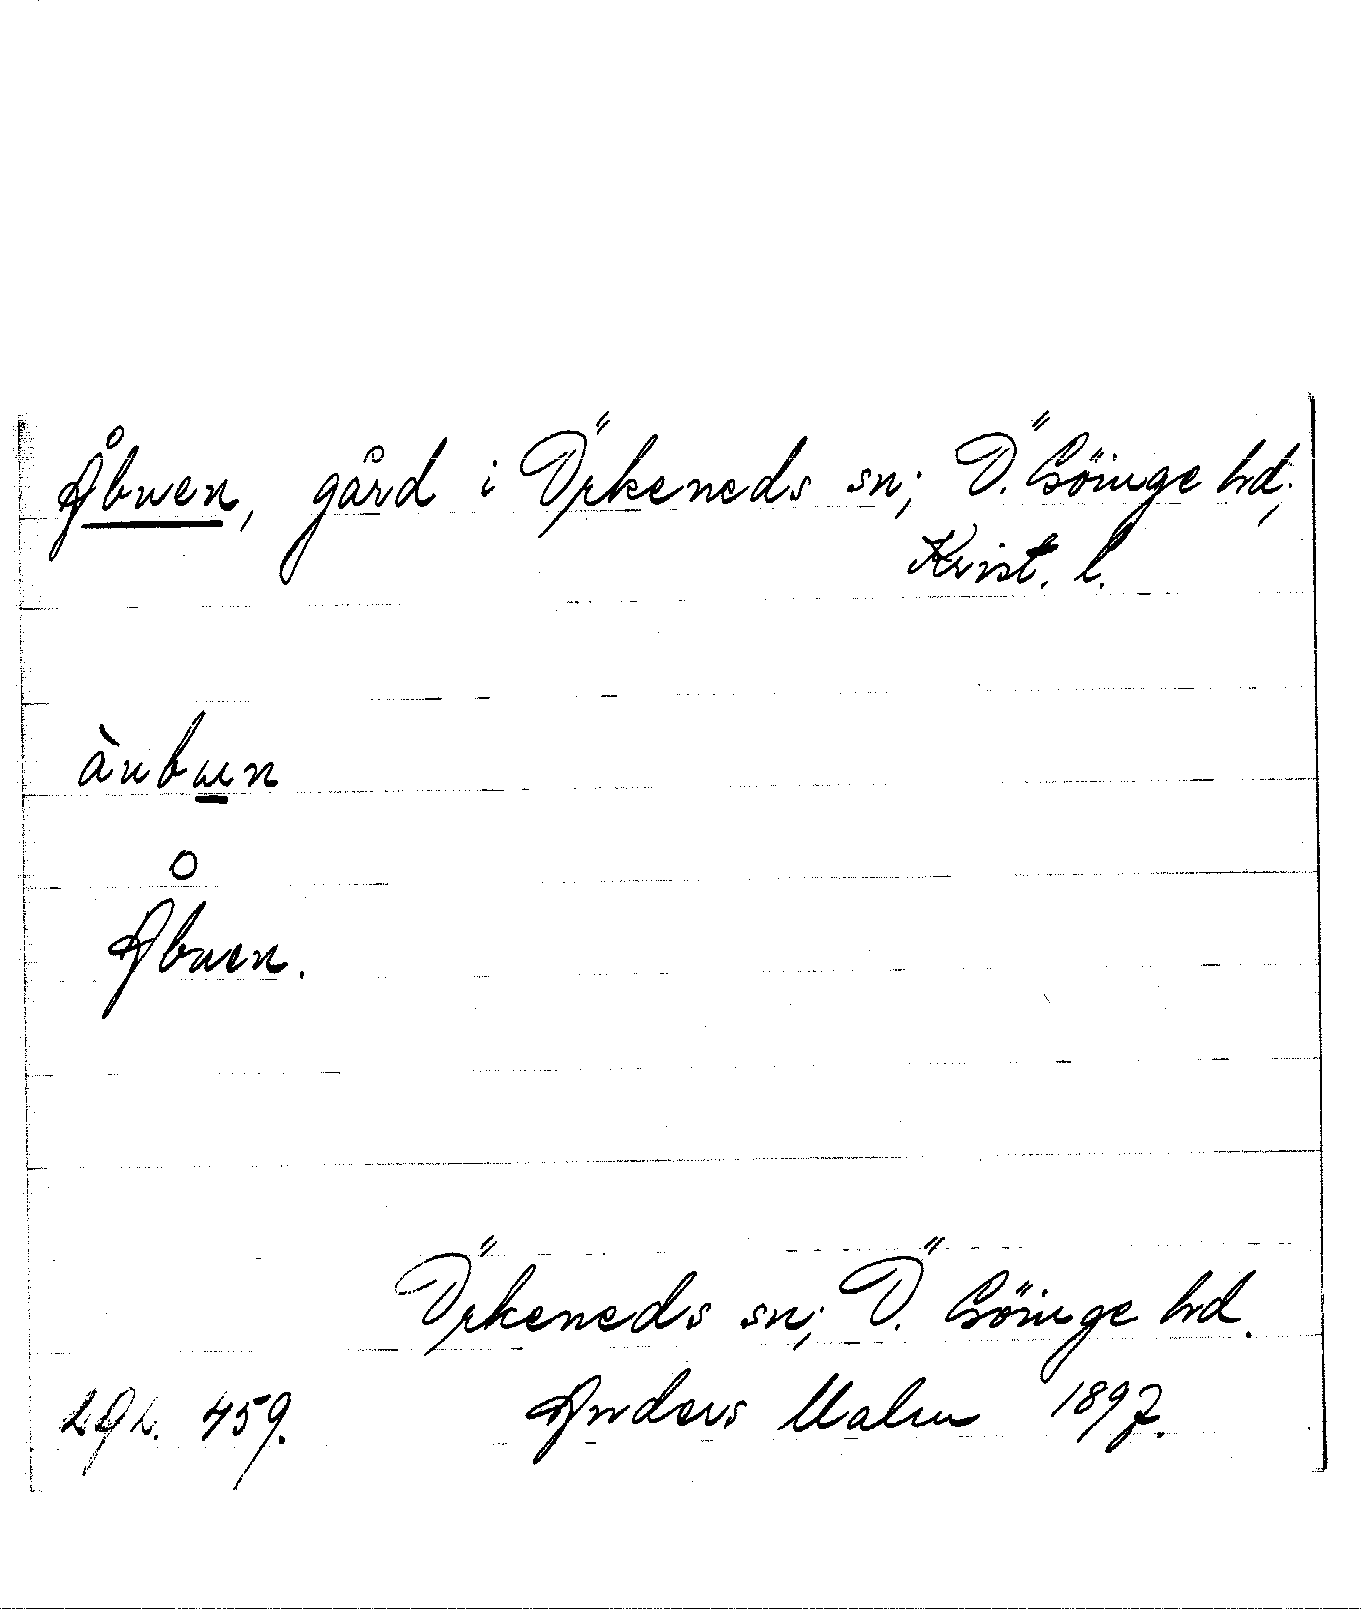 Åbuen, gård i Örkeneds sn; Ö. Göinge hd.,
Krist. l.
àubuen
Åbuen.
Örkeneds sn; Ö. Göinge hd.
LGL. 459. Anders Malm 1897.